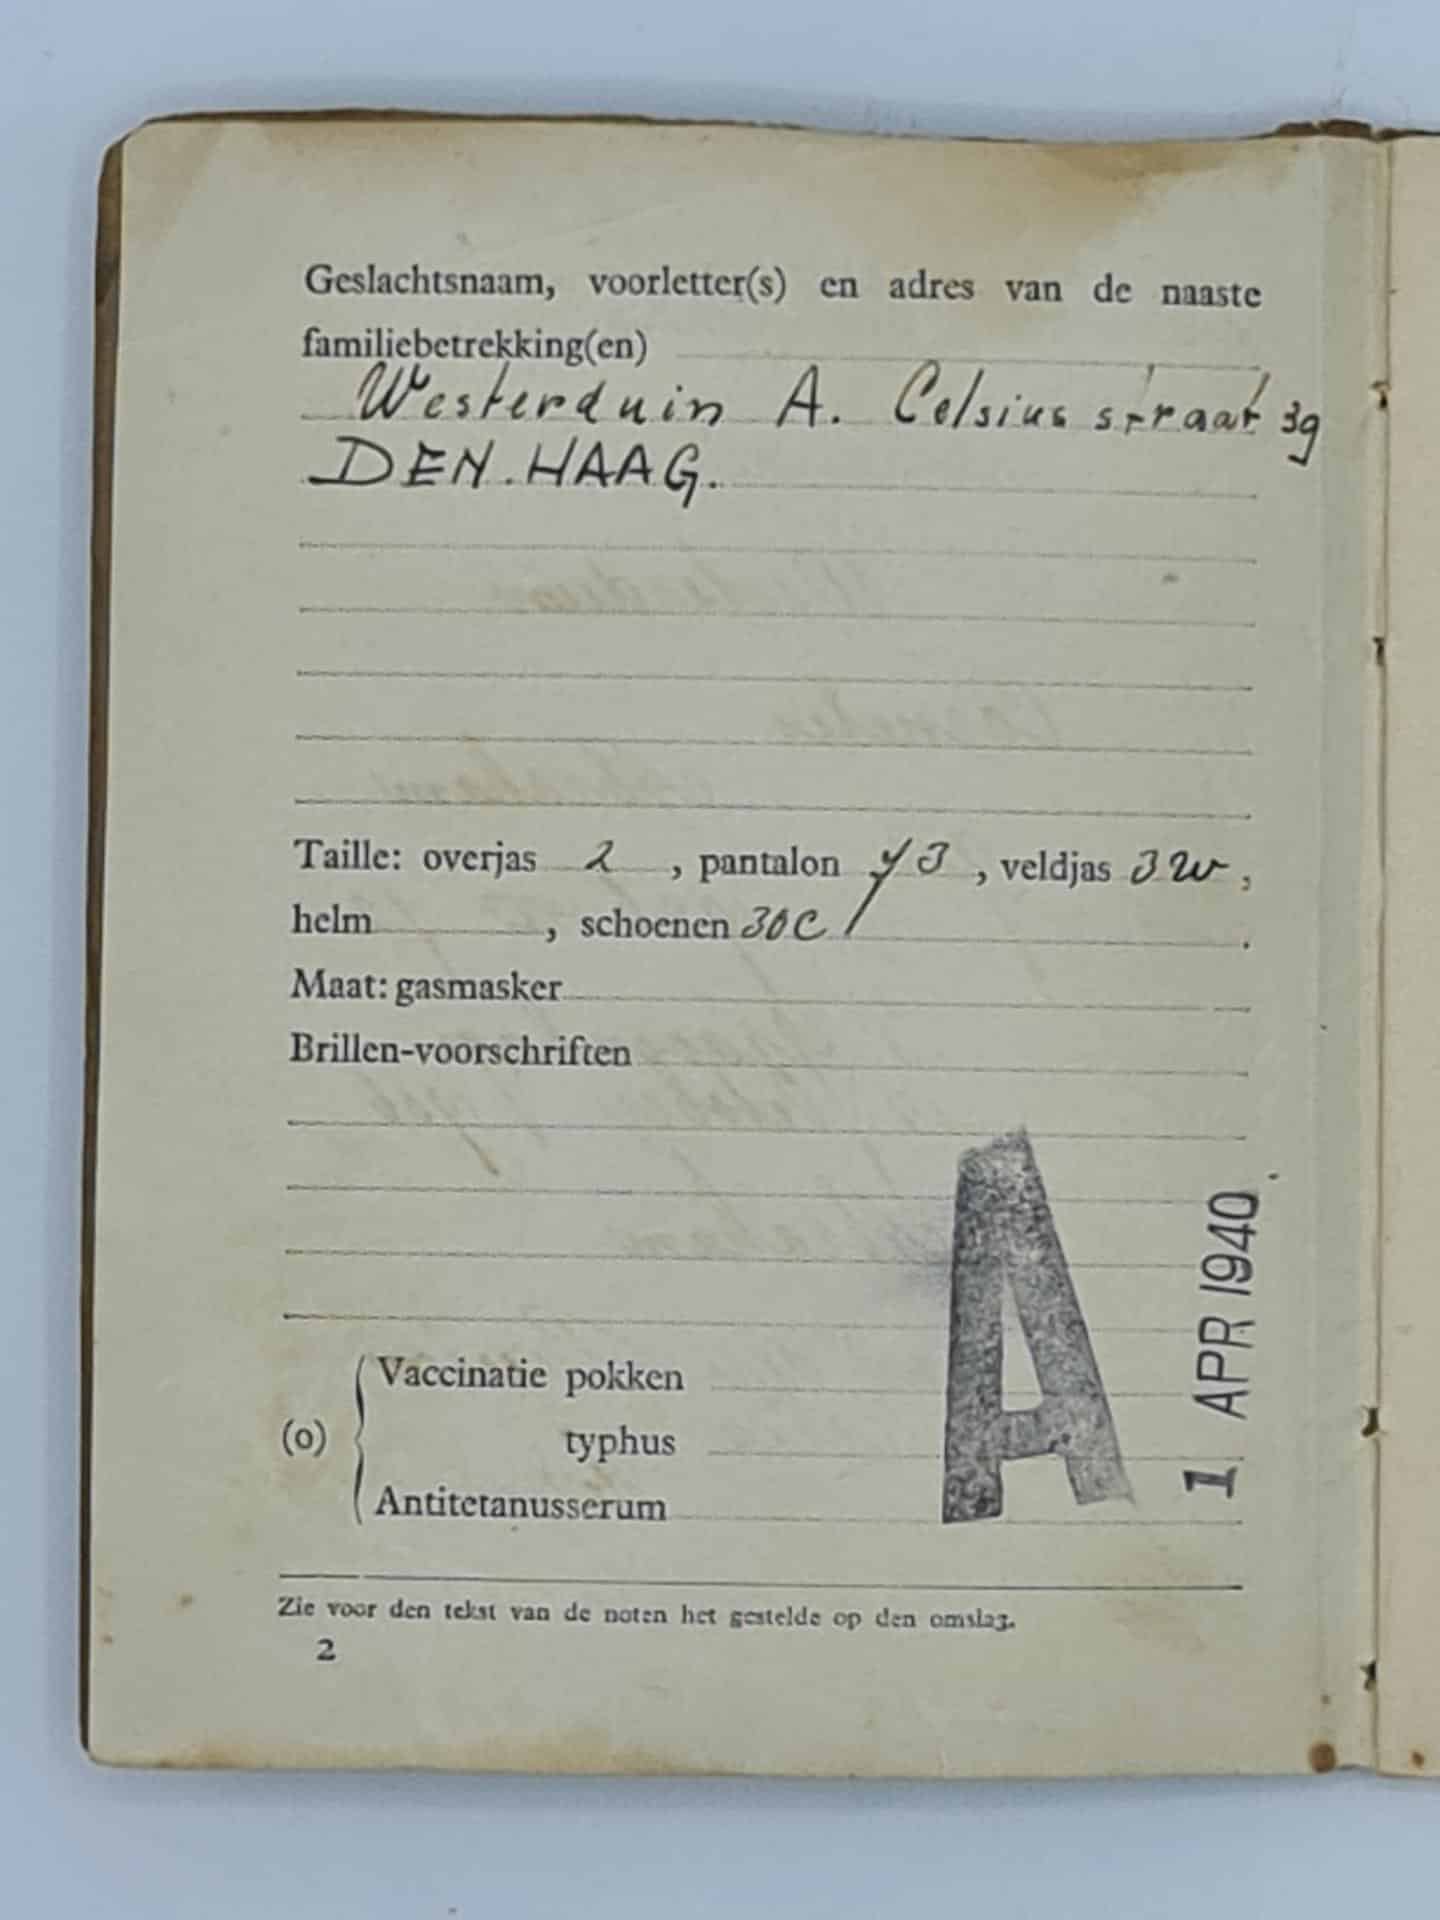 Geslachtsnaam, voorletter(s) en adres van de naaste
familiebetrekking(en)
Westerduin A. Celsius straat 39
DEN. HAAG.
Taille: overjas 2, pantalon y3, veldjas 3w,
helm , schoenen 30C.
Maat: gasmasker
Brillen-voorschriften
A
1 APR 1940
(o) Vaccinatie pokken
typhus
Antitetanusserum
Zie voor den tekst van de noten het gestelde op den omslag.
2